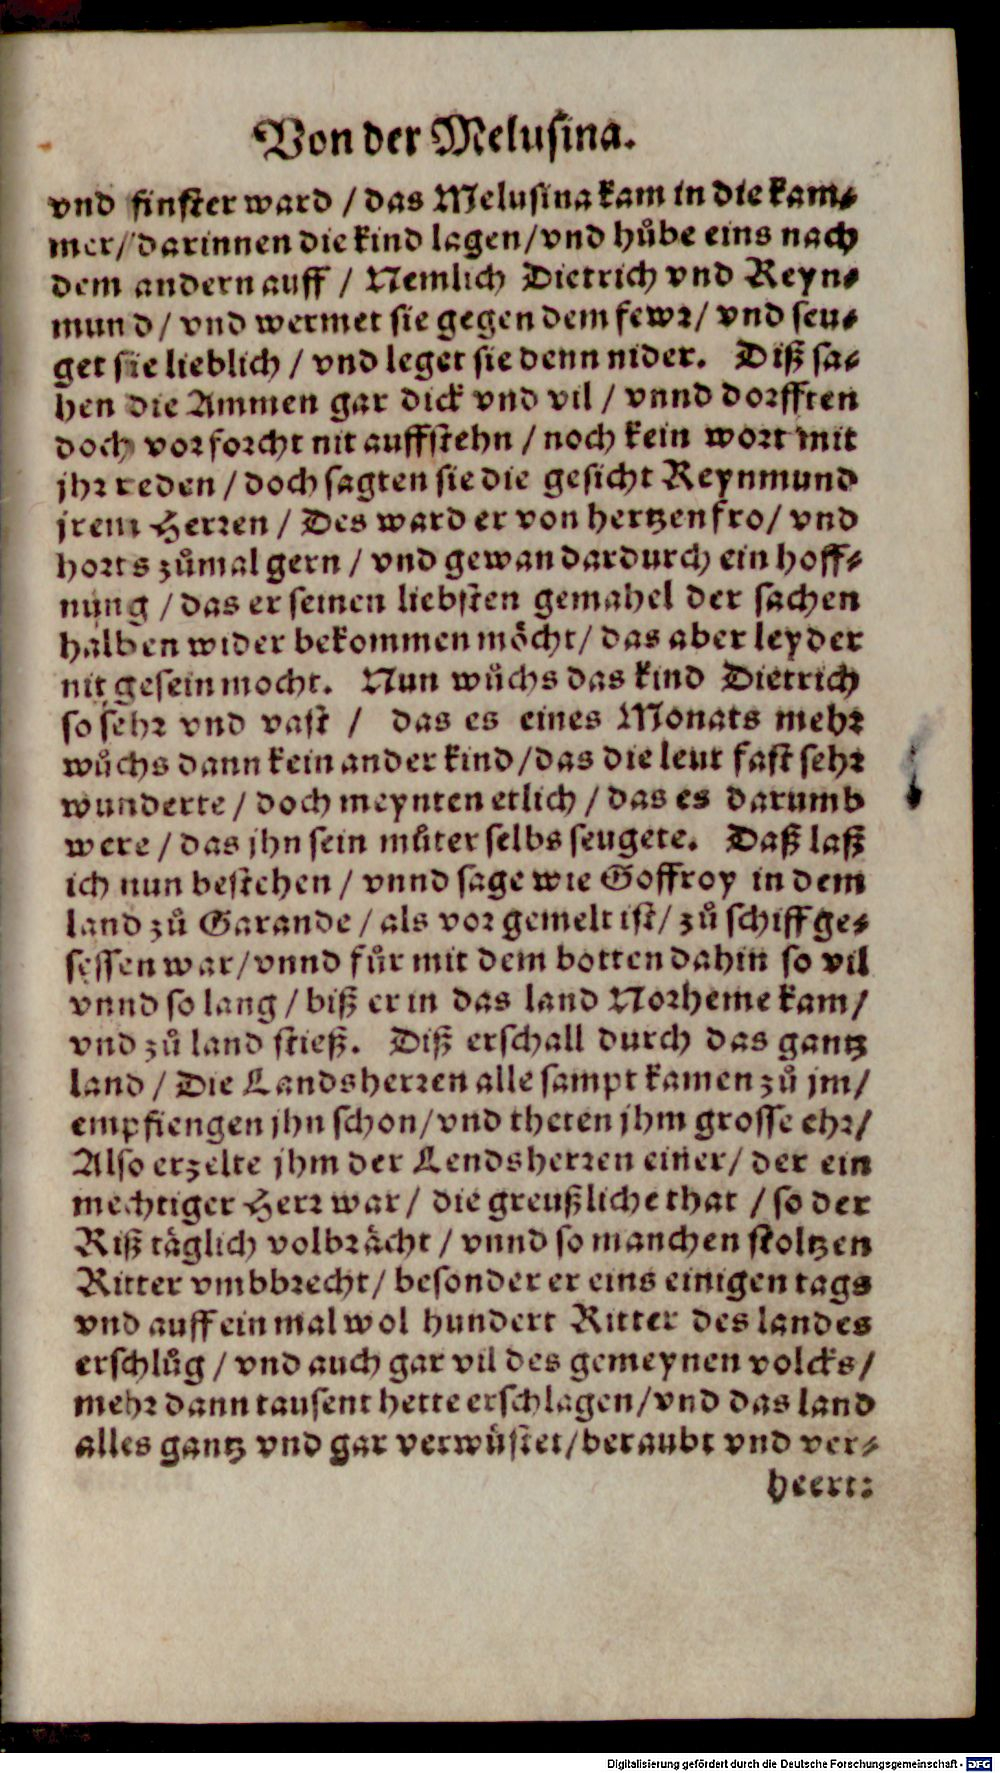 Von der Melusina.
vnd finster ward / das Melusina kam in die kam⸗
mer / darinnen die kind lagen / vnd hůbe eins nach
dem andern auff / Nemlich Dietrich vnd Reyn⸗
mund / vnd wermet sie gegen dem fewr / vnd seu⸗
get sie lieblich / vnd leget sie denn nider. Diß sa⸗
hen die Ammen gar dick vnd vil / vnnd dorfften
doch vor forcht nit auffstehn / noch kein wort mit
jhr reden / doch sagten sie die gesicht Reynmund
jrem Herren / Des ward er von hertzen fro / vnd
horts zůmal gern / vnd gewan dardurch ein hoff⸗
nung / das er seinen liebsten gemahel der sachen
halben wider bekommen möcht / das aber leyder
nit gesein mocht. Nun wůchs das kind Dietrich
so sehr vnd vast / das es eines Monats mehr
wůchs dann kein ander kind / das die leut fast sehr
wunderte / doch meynten etlich / das es darumb
were / das jhn sein můter selbs seugete. Daß laß
ich nun bestehen / vnnd sage wie Goffroy in dem
land zů Garande / als vor gemelt ist / zů schiff ge⸗
sessen war / vnnd fůr mit dem botten dahin so vil
vnnd so lang / biß er in das land Norheme kam /
vnd zů land stieß. Diß erschall durch das gantz
land / Die Landsherren alle sampt kamen zů jm /
empfiengen jhn schon / vnd theten jhm grosse ehr /
Also erzelte jhm der Lendsherren einer / der ein
mechtiger Herr war / die greußliche that / so der
Riß täglich volbrächt / vnnd so manchen stoltzen
Ritter vmbbrecht / besonder er eins einigen tags
vnd auff ein mal wol hundert Ritter des landes
erschlůg / vnd auch gar vil des gemeynen volcks /
mehr dann tausent hette erschlagen / vnd das land
alles gantz vnd gar verwüstet / beraubt vnd ver⸗
heert:
Digitalisierung gefördert durch die Deutsche Forschungsgemeinschaft - DFG